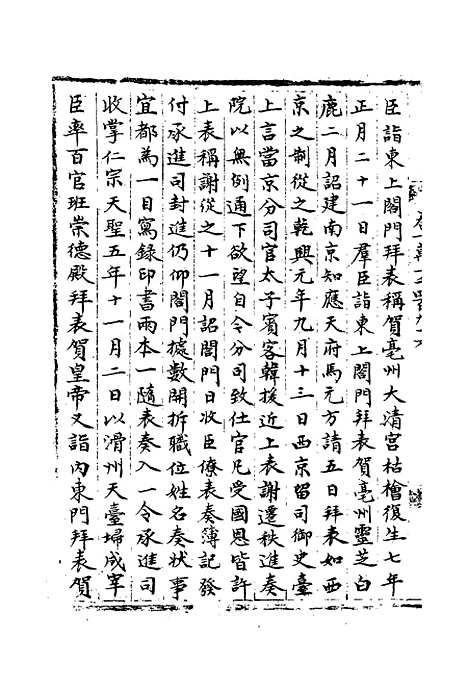 臣詣東上閤門拜表稱賀亳州大清宮枯檜復生七年
正月二十一日羣臣詣東上閤門拜表賀亳州靈芝白
鹿二月詔建南京知應天府馬元方請五日拜表如西
京之制從之乾興元年九月十三日西京留司御史臺
上言當京分司官太子賓客韓援近上表謝遷秩進奏
院以無例通下欲望自令分司致仕官凡受國恩皆許
上表稱謝從之十一月詔閤門日收臣僚表奏簿記發
付承進司封進仍仰閤門據數開拆職位姓名奏狀事
宜都為一日寫錄印書兩本一隨表奏入一令承進司
收掌仁宗天聖五年十一月二日以滑州天臺埽咸宰
臣率百官班崇德殿拜表賀皇帝又詣內東門拜表賀